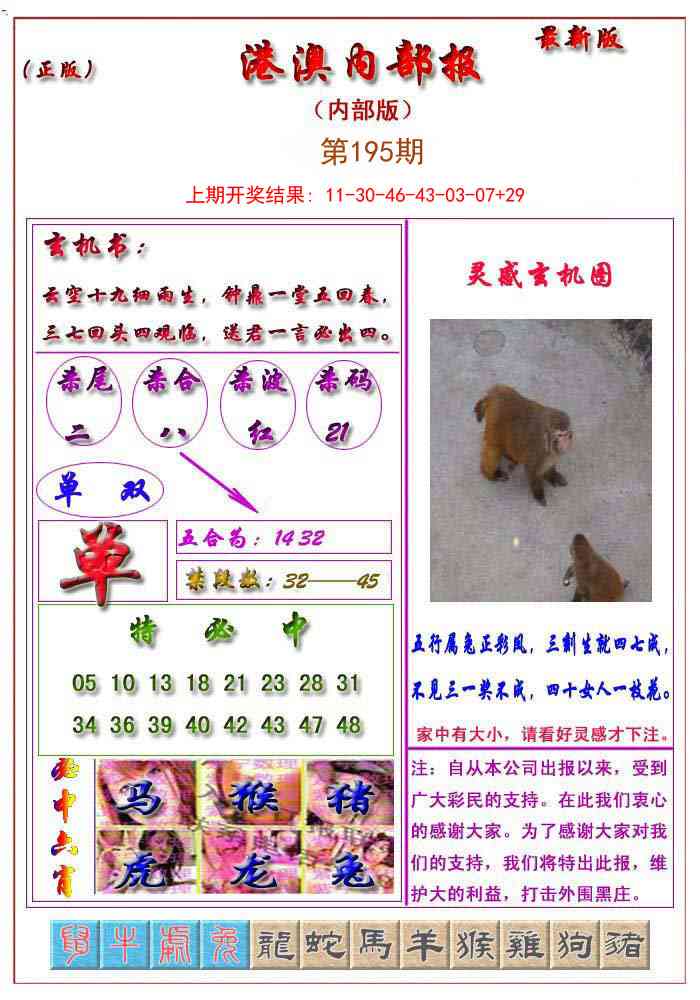 最新版
(正版)
港澳内部报
（内部版）
第195期
上期开奖结果: 11-30-46-43-03-07+29
玄机书：
云空十九细雨生，钟鼎一堂五回春，
三七回头四观临，送君一言必出四。
杀尾 杀合 杀波 杀码
二 八 红 21
单 双
单
五合为：14 32
禁段数：32——45
特 必 中
05 10 13 18 21 23 28 31
34 36 39 40 42 43 47 48
必中六肖
马 猴 猪
虎 龙 兔
灵感玄机图
五行属兔正彩凤，三割生就四七成，
不见三一奖不成，四十女人一枝花。
家中有大小，请看好灵感才下注。
注：自从本公司出报以来，受到
广大彩民的支持。在此我们衷心
的感谢大家。为了感谢大家对我
们的支持，我们将特出此报，维
护大的利益，打击外围黑庄。
鼠 牛 虎 兔 龍 蛇 馬 羊 猴 雞 狗 豬